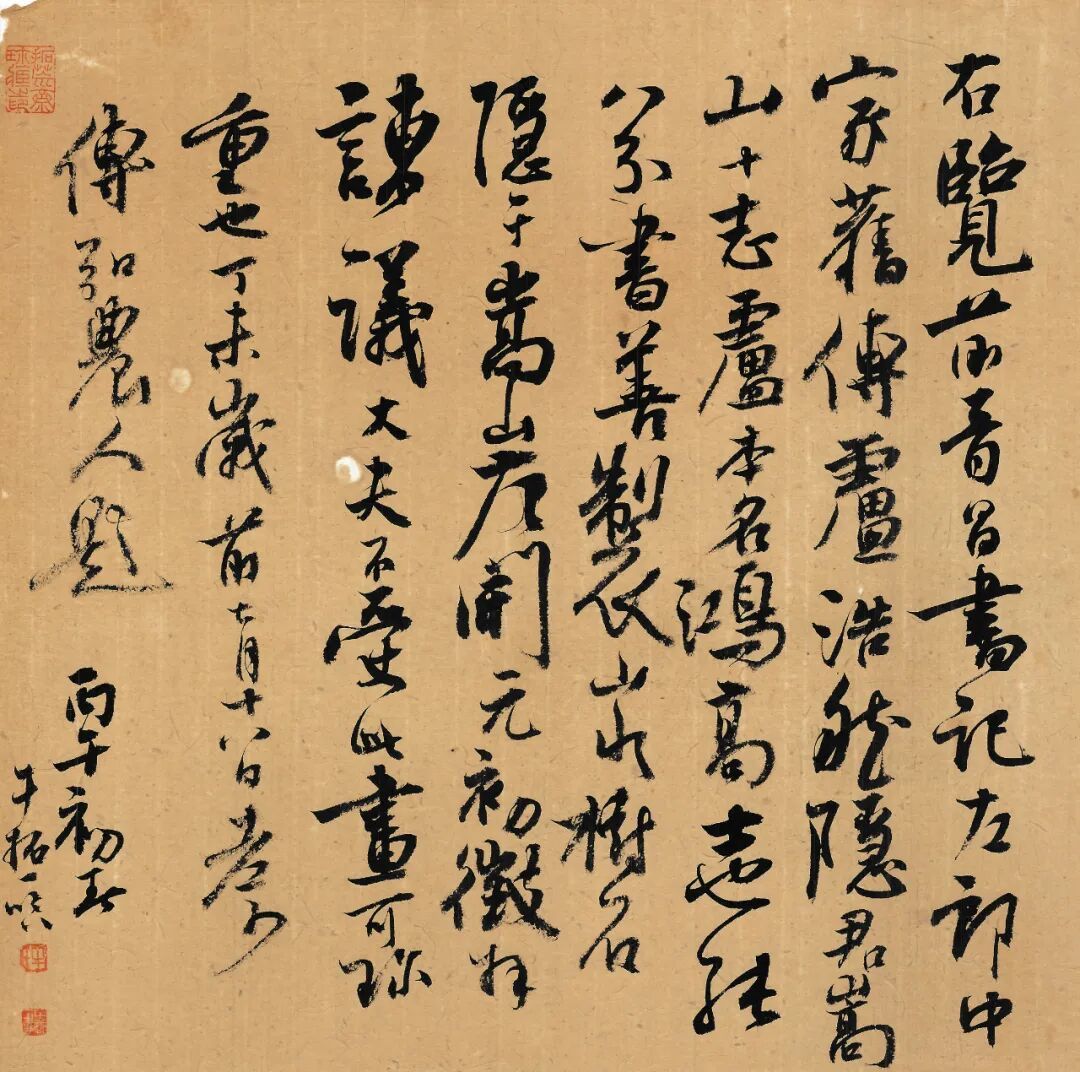 右覽前晉昌書記左郎中
家舊傳盧浩然隱君嵩
山十志盧本名鴻高士也能
八分書善製山水樹石
隱于嵩山唐開元初徵拜
諫議大夫不受此畫可珍
重也丁未歲前七月十八日老少
傅弘農人題 丙午初春